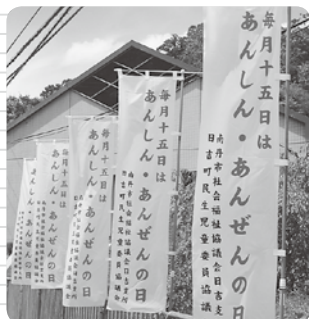 毎月十五日は
あんしん・あんぜんの日
南丹市社会福祉協議会日吉支
日吉町民生児童委員協議
毎月十五日は
あんしん・あんぜんの日
南丹市社会福祉協議会日吉支所
日吉町民生児童委員協議会
毎月十五日は
あんしん・あんぜんの日
毎月十五日は
あんしん・あんぜんの日
あんしん・あんぜんの日